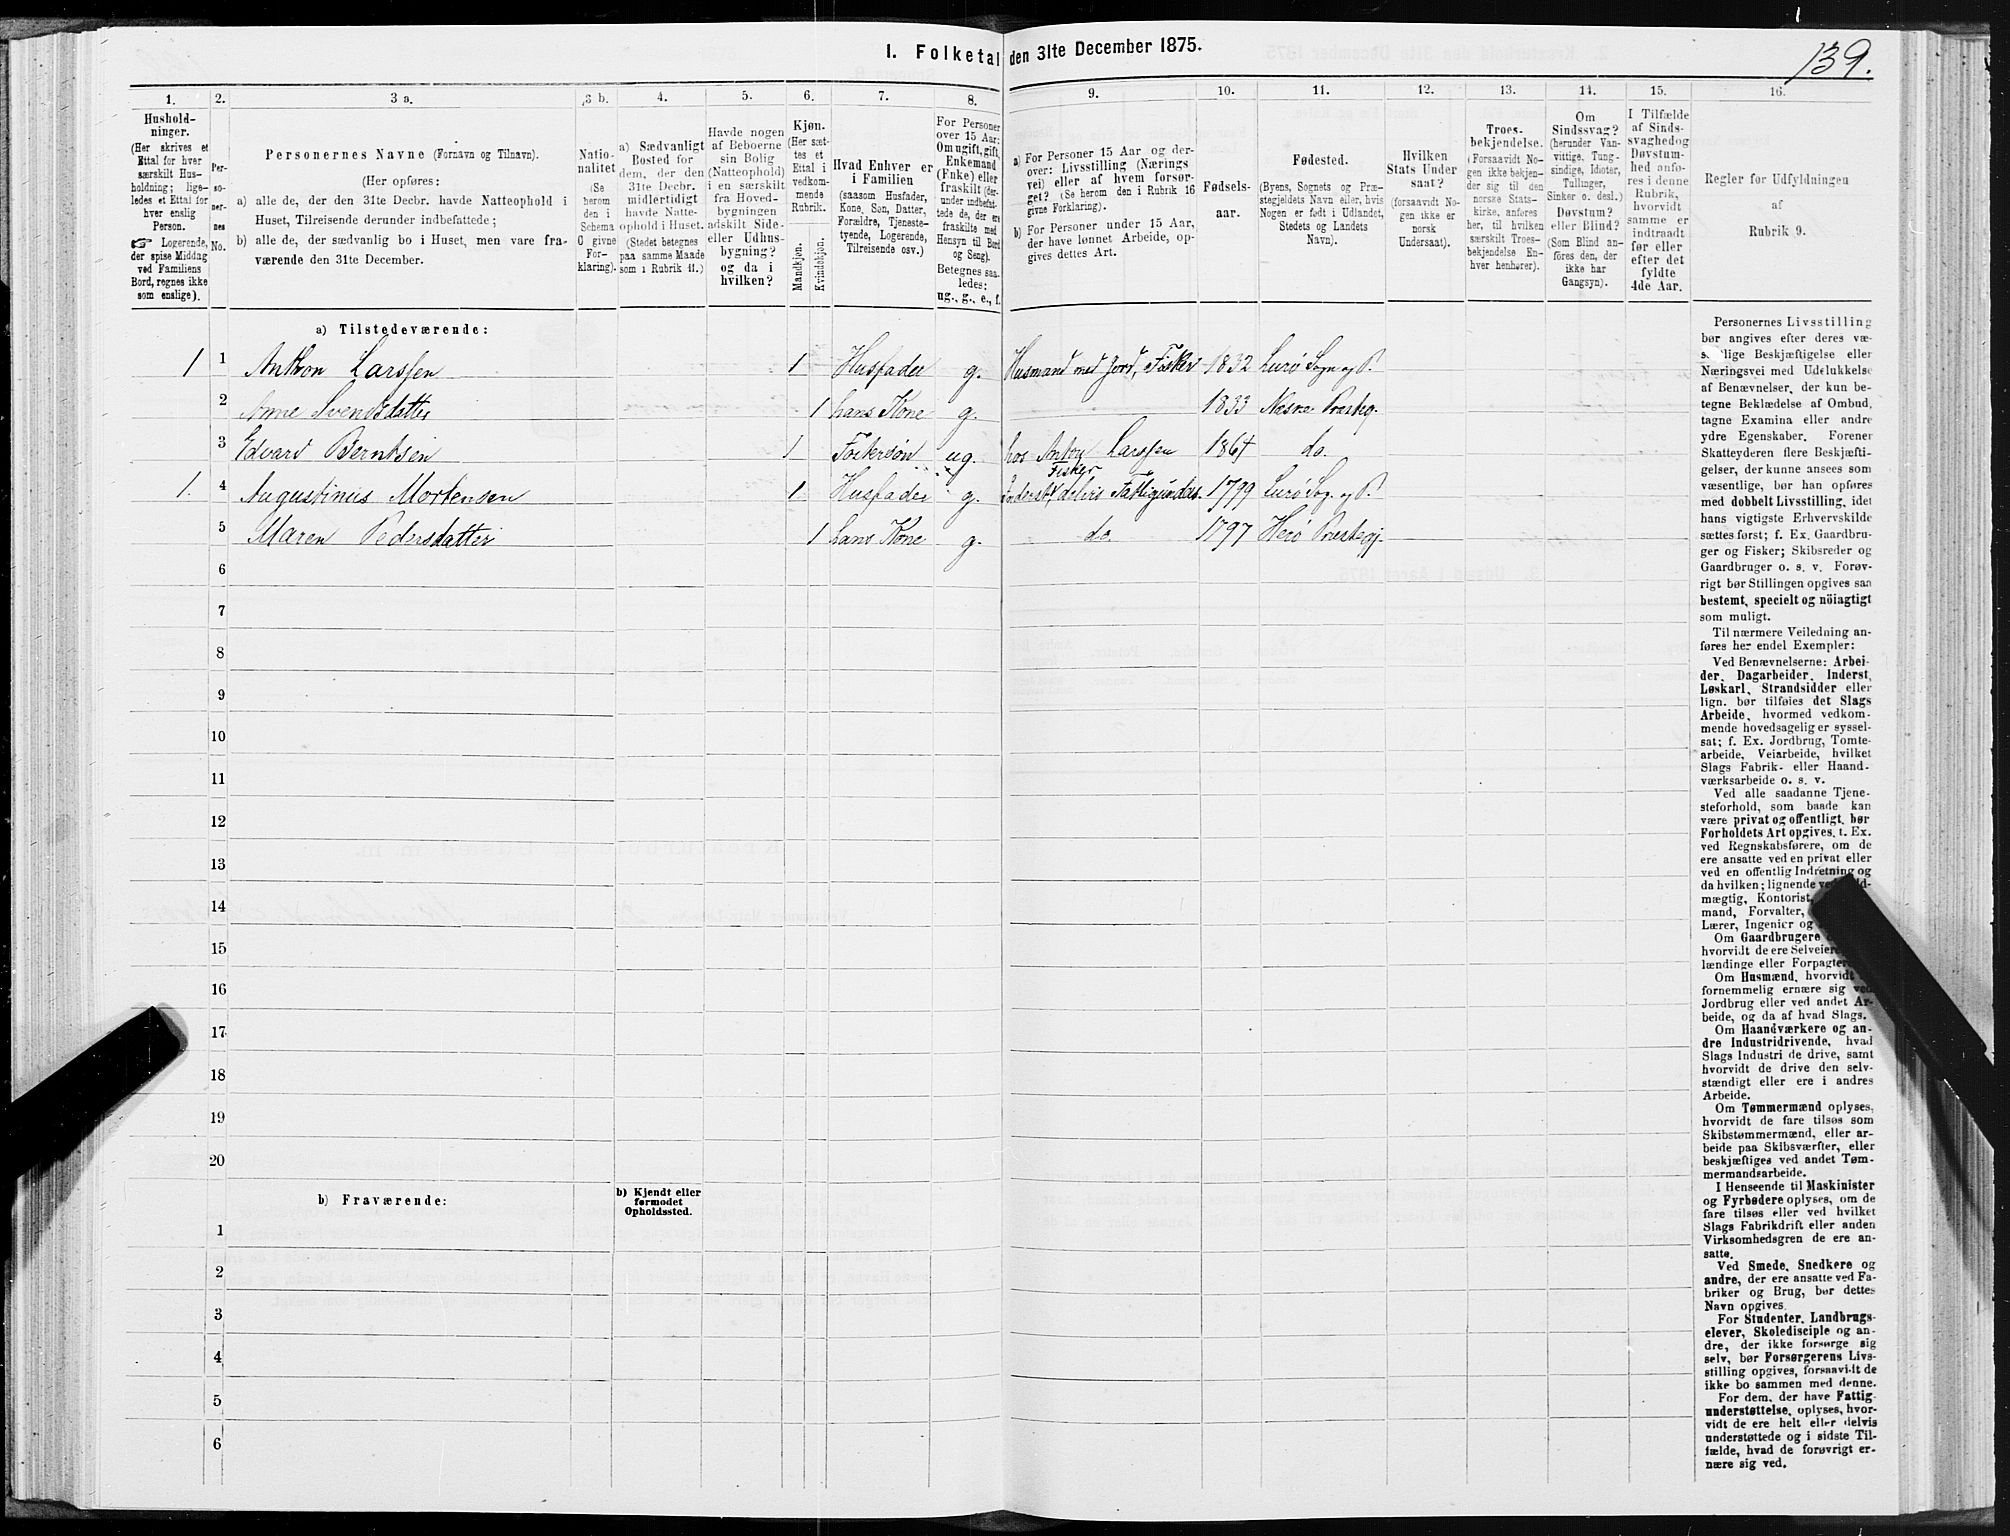 I. Folketal den 31te December 1875.
139.
1.
Hushold-
ninger.
(Her skrives et
Ettal for hver
særskilt Hus-
holdning; lige-
ledes et Ettal for
hver enslig
Person.
☞ Logerende,
der spise Middag
ved Familiens
Bord, regnes ikke
som enslige).
2.
Per-
so-
ner-
nes
No.
3 a.
Personernes Navne (Fornavn og Tilnavn).
(Her opføres:
a) alle de, der den 31te Decbr. havde Natteophold i
Huset, Tilreisende derunder indbefattede;
b) alle de, der sædvanlig bo i Huset, men vare fra-
værende den 31te December.
3 b.
Natio-
nalitet
(Se
herom
den i
Schema
C givne
For-
klaring).
4.
a) Sædvanligt
Bosted for
dem, der den
31te Decbr.
midlertidigt
havde Natte-
ophold i Huset.
(Stedet betegnes
paa samme Maade
som i Rubrik 11.)
5.
Havde nogen
af Beboerne
sin Bolig
(Natteophold)
i en særskilt
fra Hoved-
bygningen
adskilt Side-
eller Udhus-
bygning?
og da i
hvilken?
6.
Kjøn.
(Her sæt-
tes et
Ettal i
vedkom-
mende
Rubrik.
Mandkjøn.
Kvindekjøn.
7.
Hvad Enhver er
i Familien
(saasom Husfader,
Kone, Søn, Datter,
Forældre, Tjeneste-
tyende, Logerende,
Tilreisende osv.)
8.
For Personer
over 15 Aar:
Om ugift, gift,
Enkemand
(Enke) eller
fraskilt (der-
under indbefat-
tede de, der ere
fraskilte med
Hensyn til Bord
og Seng).
Betegnes saa-
ledes:
ug., g., e., f.
9.
a) For Personer 15 Aar og der-
over: Livsstilling (Nærings
vei) eller af hvem forsør-
get? (Se herom den i Rubrik 16
givne Forklaring).
b) For Personer under 15 Aar,
der have lønnet Arbeide, op-
gives dettes Art.
10.
Fødsels-
aar.
11.
Fødested.
(Byens, Sognets og Præ-
stegjeldets Navn eller, hvis
Nogen er født i Udlandet,
Stedets og Landets
Navn).
12.
Hvilken
Stats Under
saat?
(forsaavidt No-
gen ikke er
norsk
Undersaat).
13.
Troes-
bekjendelse.
(Forsaavidt No-
gen ikke bekjen-
der sig til den
norske Stats-
kirke, anføres
her, til hvilken
særskilt Troes-
bekjendelse En-
hver henhører).
14.
Om
Sindssvag?
(herunder Van-
vittige, Tung-
sindige, Idioter,
Tullinger,
Sinker o. desl.)
Døvstum?
eller Blind?
(Som Blind an-
føres den, der
ikke har
Gangsyn).
15.
I Tilfælde
af Sinds-
svaghed og
Døvstum-
hed anfø-
res i denne
Rubrik,
hvorvidt
samme er
indtraadt
før eller
efter det
fyldte
4de Aar.
16.
Regler for Udfyldningen
af
Rubrik 9.
a) Tilstedeværende:
1 1 Anthon Larssen 1 Husfader g. Husmand med Jord, Fisker 1832 Lurø Sogn og P.
2 Anne Svendsdatter 1 hans Kone g. 1833 Nesne Præsteg.
3 Edvard Berntsen 1 Fostersøn ug. hos Anton Larssen 1864 do.
Fisker
1. 4 Augustinus Mortensen 1 Husfader g. Inderst, delvis Fattigunders. 1799 Lurø Sog. og P.
5 Maren Pedersdatter 1 hans Kone g. do. 1797 Herø Præstegj.
6
7
8
9
10
11
12
13
14
15
16
17
18
19
20
b) Fraværende:
b) Kjendt eller
formodet
Opholdssted.
1
2
3
4
5
6
Personernes Livsstilling
bør angives efter deres væ-
lige Beskjæftigelse eller
Næringsvei med Udelukkelse
af Benævnelser, der kun be-
tegne Beklædelse af Ombud,
tagne Examina eller andre
ydre Egenskaber. Forener
Skatteyderen flere Beskjæfti-
gelser, der kunne ansees som
væsentlige, bør han opføres
med dobbelt Livsstilling, idet
hans vigtigste Erhvervskilde
sættes først; f. Ex. Gaardbru-
ger og Fisker; Skibsreder og
Gaardbruger o. s. v. Forøv-
rigt bør Stillingen opgives saa
bestemt, specielt og nöiagtigt
som muligt.
Til nærmere Veiledning an-
føres her endel Exempler:
Ved Benævnelserne: Arbei-
der, Dagarbeider, Inderst,
Løskarl, Strandsidder eller
lign. bør tilføies det Slags
Arbeide, hvormed vedkom-
mende hovedsagelig er syssel-
sat; f. Ex. Jordbrug, Tomte-
arbeide, Veiarbeide, hvilket
Slags Fabrik- eller Haand-
værksarbeide o. s. v.
Ved alle saadanne Tjene-
steforhold, som baade kan
være privat og offentligt, bør
Forholdets Art opgives, t. Ex.
ved Regnskabsførere, om de
ere ansatte ved en privat eller
ved en offentlig Indretning og
da hvilken; lignende ved
mægtig, Kontorist,
mand, Forvalter,
Lærer, Ingeniør og
Om Gaardbrugere
hvorvidt de ere Selveiere,
lændinge eller Forpagtere
Om Husmænd, hvorvidt
fornemmelig ernære sig ved
Jordbrug eller ved andet Ar-
beide, og da af hvad Slags.
Om Haandværkere og an-
dre Industridrivende, hvad
Slags Industri de drive, samt
hvorvidt de drive den selv-
stændigt eller ere i andres
Arbeide.
Om Tømmermænd oplyses,
hvorvidt de fare tilsøs som
Skibstømmermænd, eller ar-
beide paa Skibsværfter, eller
beskjæftiges ved andet Tøm-
mermandsarbeide.
I Henseende til Maskinister
og Fyrbødere oplyses, om de
fare tilsøs eller ved hvilket
Slags Fabrikdrift eller anden
Virksomhedsgren de ere an-
satte.
Ved Smede, Snedkere og
andre, der ere ansatte ved Fa-
briker og Brug, bør dettes
Navn opgives.
For Studenter, Landbrugs-
elever, Skoledisciple og an-
dre, der ikke forsørge sig
selv, bør Forsørgerens Livs-
stilling opgives, forsaavidt de
ikke bo sammen med denne.
For dem, der have Fattig-
understøttelse, oplyses, hvor-
vidt de ere helt eller delvis
understøttede og i sidste Til-
fælde, hvad de forøvrigt er-
nære sig ved.